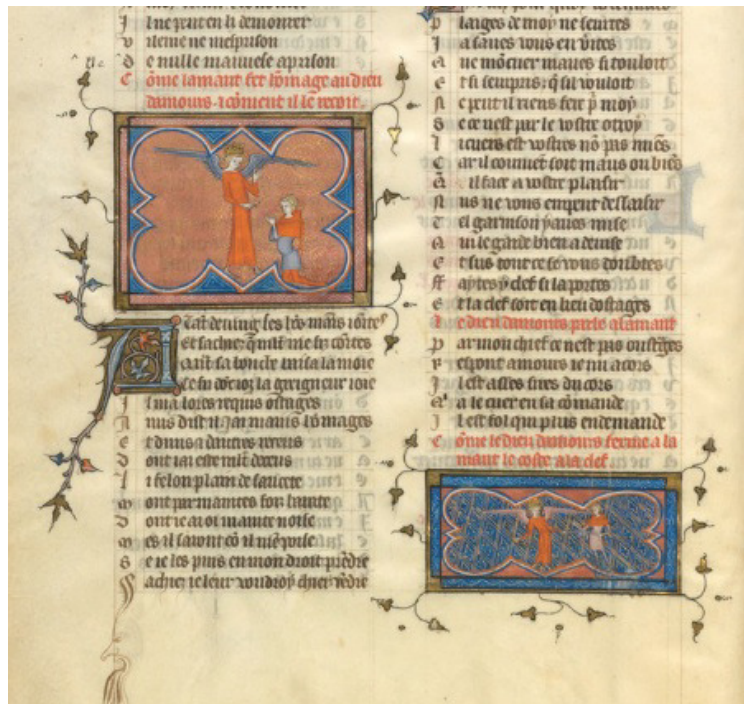 I l ne peut en li demourer
v ilenie ne mesprison
d e nulle mauuese aprison
C õme lamant fet lõmage au dieu
damours . ⁊ cõment il le recoit .
A Tãt deuing ses hõs mains iointes
Et sachiez q̃ mlt me fis cointes
Quãt sa bouche baisa la moie
Ce fu dõt ioi la greigneur ioie
I l ma lores requis ostages
A mis dist il iai mains hõmages
E t dunis ⁊ dautres receus
D ont iai este mlt deceus
I i felon plain de fausete
m ont par maintes fois barate
D ont ie ai oi mainte noise
m es il sauront cõ il me poise
S e ie les puis en mon droit prẽdre
ie leur voudroy chier vẽdre
p laiges de moy ne seurtes
I a saues vous en vites
q ne mauez si tou
e t si seurpris q̃ sil vouloit
n e peut il riens fere p̃ moy
S e ce nest par le vostre otroy
l i cuers est vostres nõ pas miẽs
C ar il couuiẽt soit maus ou biẽs
Q̃ il face a vostre plaisir
n us ne vous en peut dessaisir
T el garnison y aues mise
Q ui le garde bien a deuise
E t sus tout ce se vous doubtes
ff aytes y clef si la portes
E t la clef soit en lieu dostages
L e dieu damours parle a lamant
p ar mon chief ce nest pas oustrages
R espont amours ie mi acors
I l est asses sires du cors
Q̃ a le cuer en sa cõmande
I l est fol qui plus en demande
C õme le dieu damours ferme a la
mant le coste a la clef